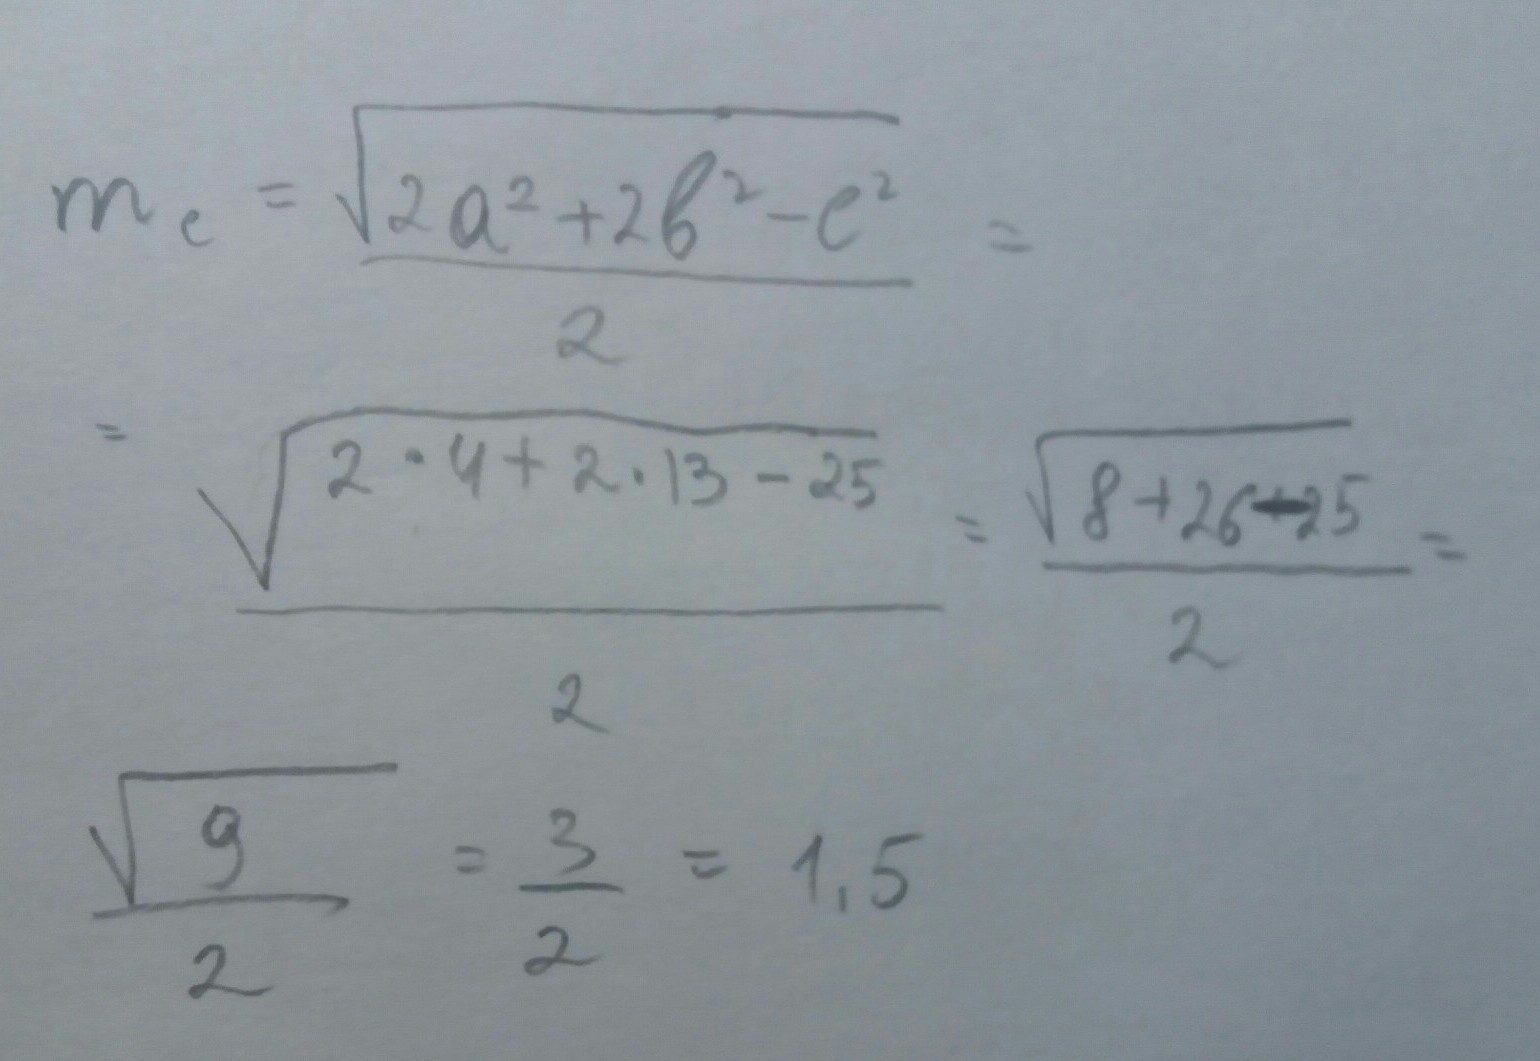 m_c = √(2a² + 2b² - c²) / 2 =
= √(2·4 + 2·13 - 25) / 2 = √(8 + 26 - 25) / 2 =
√9 / 2 = 3/2 = 1,5